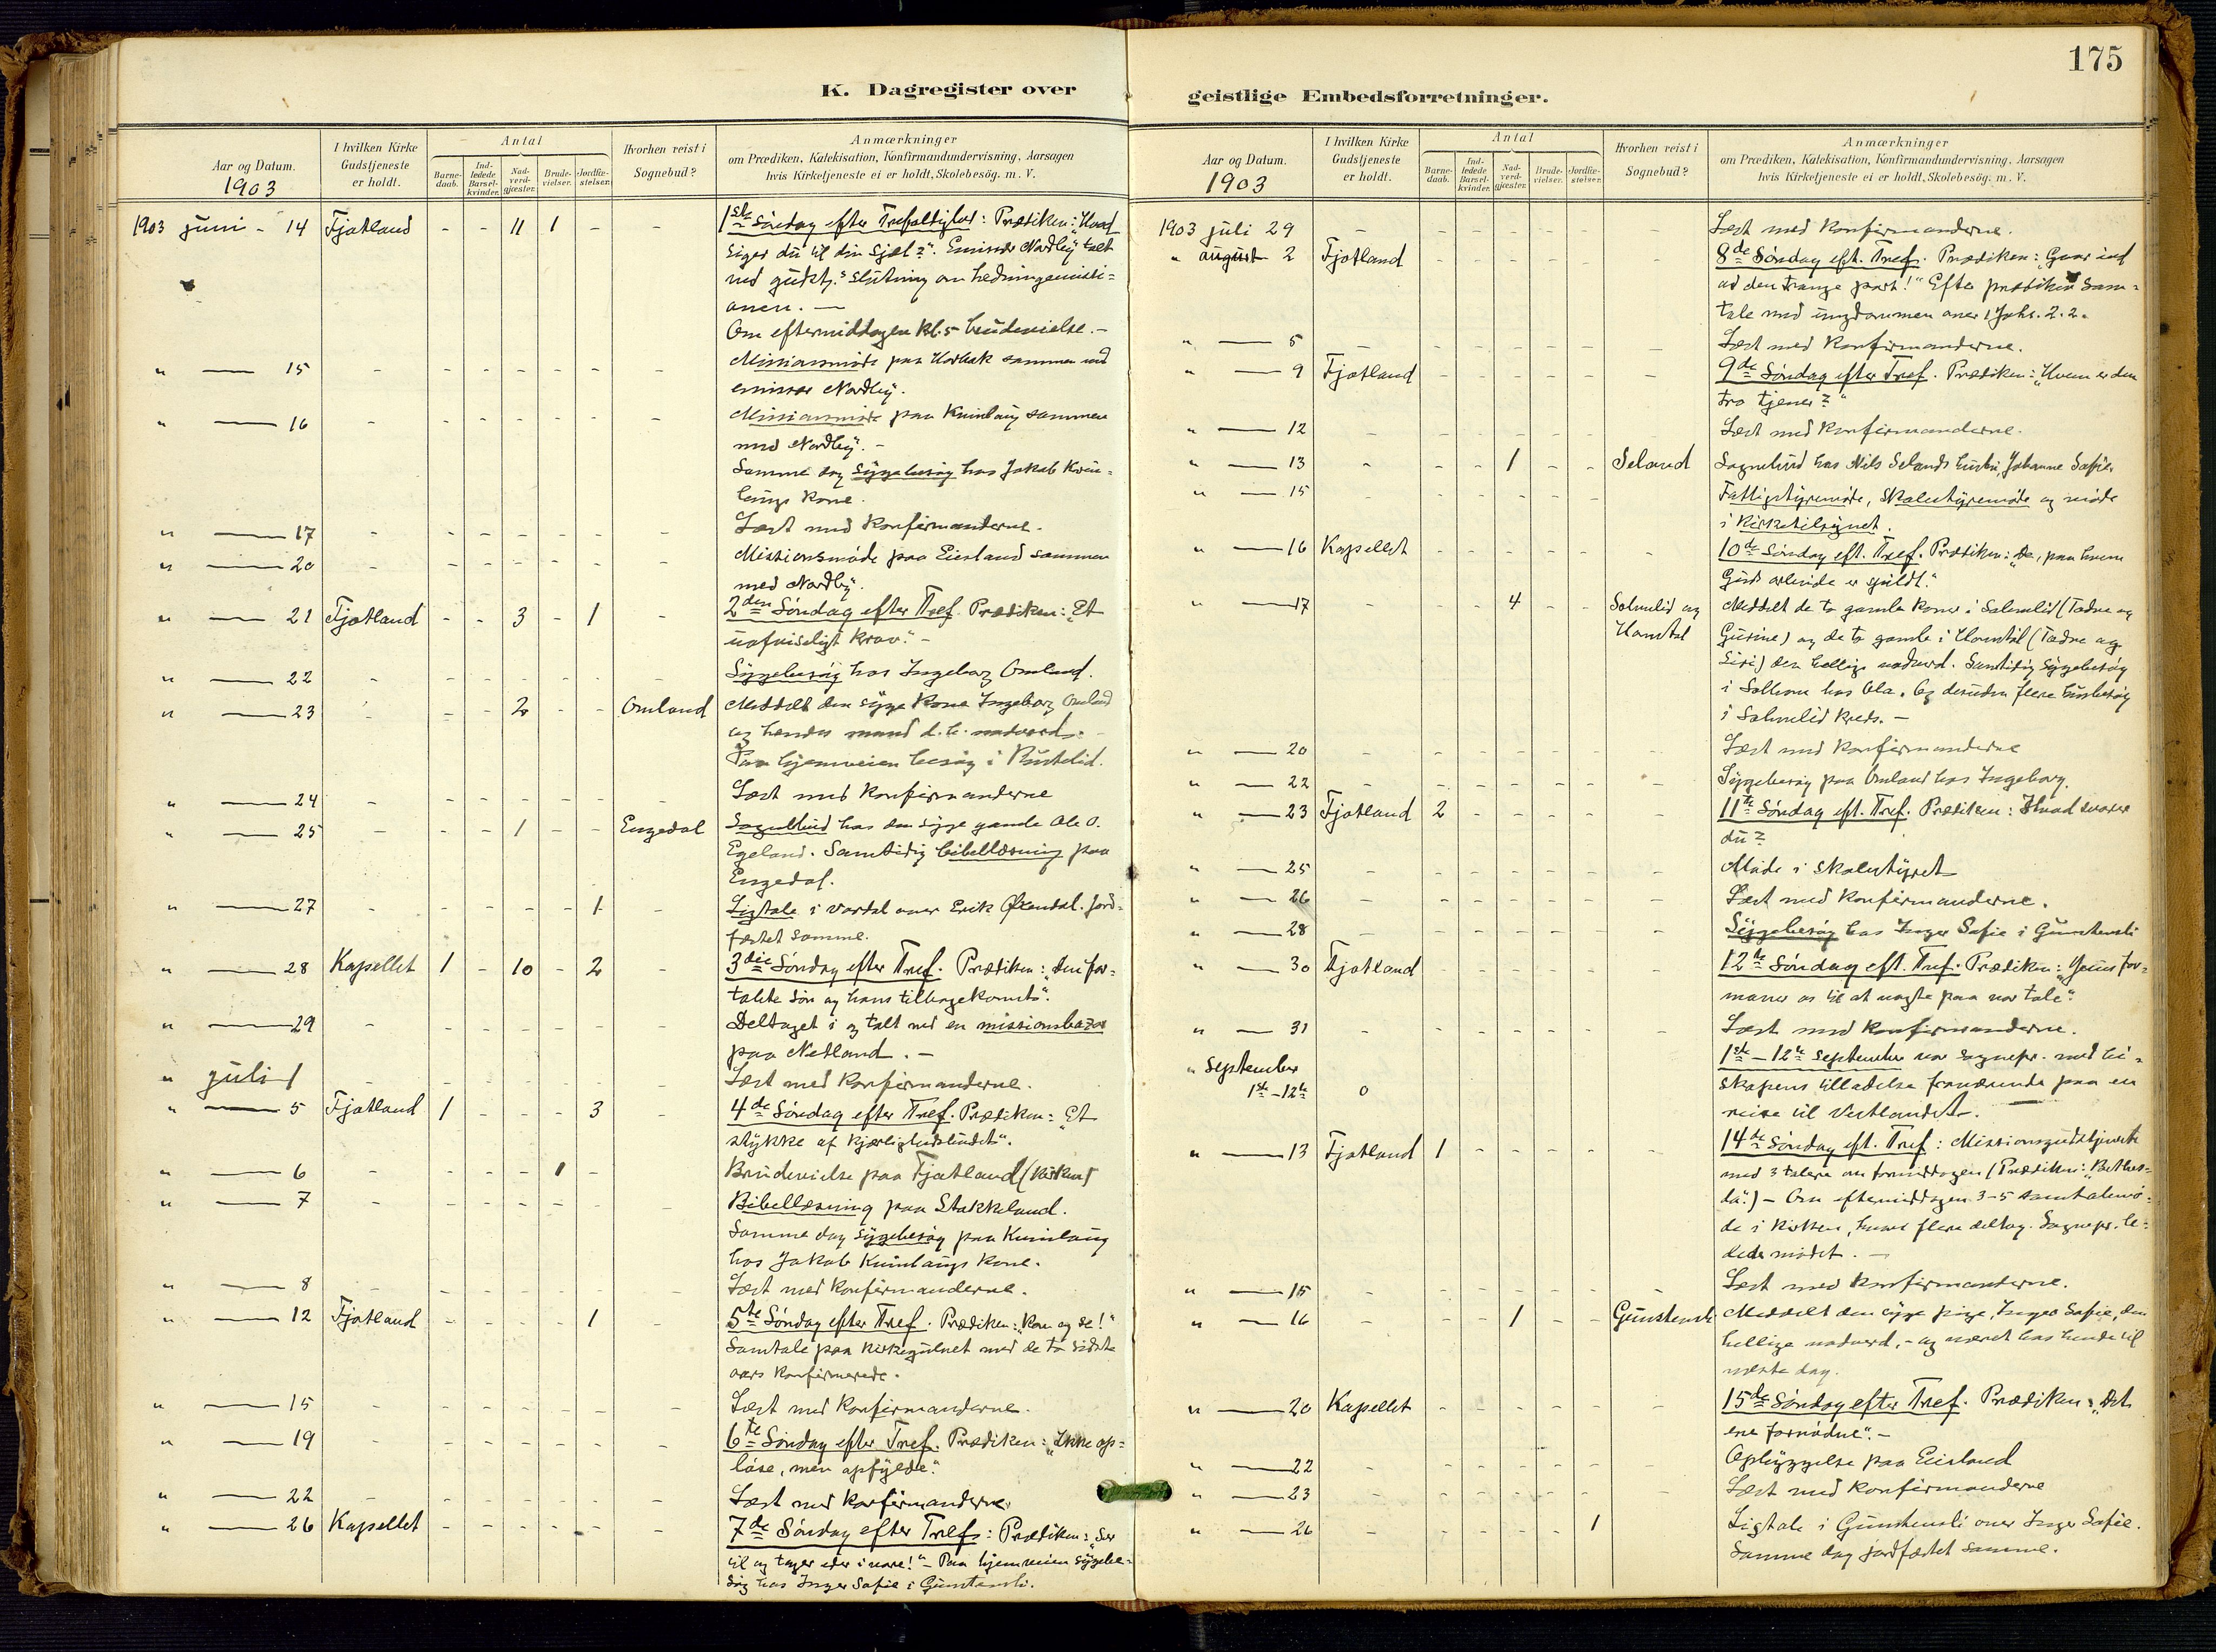 175
K. Dagregister over
Aar og Datum.
1903
I hvilken Kirke Gudstjeneste er holdt.
Antal
Barnedaab.
Indledede Barselkvinder.
Nadverdgjæster.
Brudevielser.
Jordfæstelser.
Hvorhen reist i Sognebud?
Anmærkninger
om Prædiken, Katekisation, Konfirmandundervisning, Aarsagen
hvis Kirketjeneste ei er holdt, Skolebesög. m. V.
1903 juni - 14 Fjotland - - 11 1 - - 1ste Søndag efter Trefoldighed: Prædiken: "Hvad
siger du til din sjæl?". Emissær Nordbÿ talt
ved gudstj.s slutning om hedningemissi=
onen. —
Om eftermiddagen kl. 5 brudevielse. -
" — 15 - - - - - - - Missionsmøde paa Horbak sammen med
emissær Nordbÿ.
" — 16 - - - - - - - Missionsmøde paa Kvinlaug sammen
med Nordbÿ. -
Samme dag sygebesøg hos Jakob Kvin=
laugs kone.
" — 17 - - - - - - - Læst med konfirmanderne.
" — 20 - - - - - - - Missionsmøde paa Eiesland sammen
med Nordbÿ.
" — 21 Fjotland - - 3 - 1 - 2den Søndag efter Tref. Prædiken: "Et
uafviseligt krav." -
" — 22 - - - - - - - Sygebesøg hos Ingeborg Omland.
" — 23 - - - 2 - - Omland Meddelt den syge kone Ingeborg Omland
og hendes mand d. h. nadverd. -
Paa hjemveien besøg i Rustelid.
" — 24 - - - - - - - Læst med konfirmanderne
" — 25 - - - 1 - - Engedal Sognebud hos den syge gamle Ole O.
Egeland. Samtidig bibellæsning paa
Engedal.
" — 27 - - - - - 1 - Ligtale i Vordal over Erik . Jord=
fæstet samme.
" — 28 Kapellet 1 - 10 - 2 - 3die Søndag efter Tref. Prædiken: "Den for=
tabte søn og hans tilbagekomst".
" — 29 - - - - - - - Deltaget i og talt ved en missionsbazar
paa Netland. -
" juli 1 - - - - - - - Læst med konfirmanderne.
" — 5 Fjotland 1 - - - 3 - 4de Søndag efter Tref. Prædiken: "Et
stykke af kjærlighedsbudet".
" — 6 - - - - 1 - Brudevielse paa Fjotland (kirken)
" — 7 - - - - - - - Bibellæsning paa Stakkeland.
Samme dag sygebesøg paa Kvinlaug
hos Jakob Kvinlaugs kone.
" — 8 - - - - - - - Læst med konfirmanderne.
" — 12 Fjotland - - - - 1 - 5te Søndag efter Tref. Prædiken: "Kom og se!"
Samtale paa kirkegulvet med de to sidste
aars konfirmerede.
" — 15 - - - - - - - Læst med konfirmanderne.
" — 19 - - - - - - 6te Søndag efter Tref. Prædiken: "Ikke op=
løse, men opfylde."
" — 22 - - - - - - - Læst med konfirmanderne.
" — 26 Kapellet - - - - - - 7de Søndag efter Tref: Prædiken: "Ser
til og tager eder i vare!" - Paa hjemveien sygebe=
søg hos Inger Sofie i Gunstensli.
geistlige Embedsforretninger.
Aar og Datum.
1903
I hvilken Kirke Gudstjeneste er holdt.
Antal
Barnedaab.
Indledede Barselkvinder.
Nadverdgjæster.
Brudevielser.
Jordfæstelser.
Hvorhen reist i Sognebud?
Anmærkninger
om Prædiken, Katekisation, Konfirmandundervisning, Aarsagen
hvis Kirketjeneste ei er holdt, Skolebesög. m. V.
1903 juli 29 - - - - - - - Læst med konfirmanderne.
" august 2 Fjotland - - - - - - 8de Søndag eft. Tref. Prædiken: "Gaar ind
ad den trange port!" Efter prædiken sam=
tale med ungdommen over 1 Joh. 2. 2.
" — 5 - - - - - - - Læst med konfirmanderne.
" — 9 Fjotland - - - - - - 9de Søndag efter Tref. Prædiken: "Hvem er den
tro tjener?"
" — 12 - - - - - - - Læst med konfirmanderne.
" — 13 - - - 1 - - Seland Sognebud hos Nils Selands hustru, Johanne Sofie.
" — 15 - - - - - - Fattigstyremøde, Skolestyremøde og møde
i kirketilsynet.
" — 16 Kapellet - - - - - - 10de Søndag eft. Tref. Prædiken: "De, paa hvem
Guds arbeide er spildt."
" — 17 - - 4 - - Solmelid og Homstøl Meddelt de to gamle koner i Solmelid (Tadne og
Gurine) og de to gamle i Homstøl (Tadne og
Siri) den hellige nadverd. Samtidig sygebesøg
i Solhom hos Ola. Og desuden flere husbesøg
i Solmelid kreds. -
" — 20 - - - - - - - Læst med konfirmanderne
" — 22 - - - - - - - Sygebesøg paa Omland hos Ingeborg.
" — 23 Fjotland 2 - - - - - 11te Søndag eft. Tref. Prædiken: Hvad svarer
du?
" — 25 - - - - - - - Møde i skolestyret
" — 26 - - - - - - - Læst med konfirmanderne.
" — 28 - - - - - - - Sygebesøg hos Inger Sofie i Gunstensli
" — 30 Fjotland - - - - - - 12te Søndag eft. Tref. Prædiken: "Jesus for=
maner os til at vogte paa vor tale."
" — 31 - - - - - - - Læst med konfirmanderne.
" September
1ste - 12te 0 1ste - 12te September var sognepr. med bi=
skopens tilladelse fraværende paa en
reise til Vestlandet.
" — 13 Fjotland 1 - - - - - 14de Søndag eft. Tref: Missionsgudstjeneste
med 3 talere om formiddagen (Prædiken: "Bethes=
da".) - Om eftermiddagen 3-5 samtalemø=
de i kirken, hvori flere deltog. Sognepr. le=
dede mødet. -
" — 15 - - - - - - - Læst med konfirmanderne.
" — 16 - - - 1 - - Gunstensli Meddelt den syge pige, Inger Sofie, den
hellige nadverd, - og været hos hende til
næste dag.
" — 20 Kapellet - - - - - - 15de Søndag efter Tref. Prædiken: "Det
ene fornødne". -
" — 22 - - - - - - - Opbyggelse paa Eiesland
" — 23 - - - - - - - Læst med konfirmanderne
" — 26 - - - - - 1 - Ligtale i Gunstensli over Inger Sofie.
Samme dag jordfæstet samme.